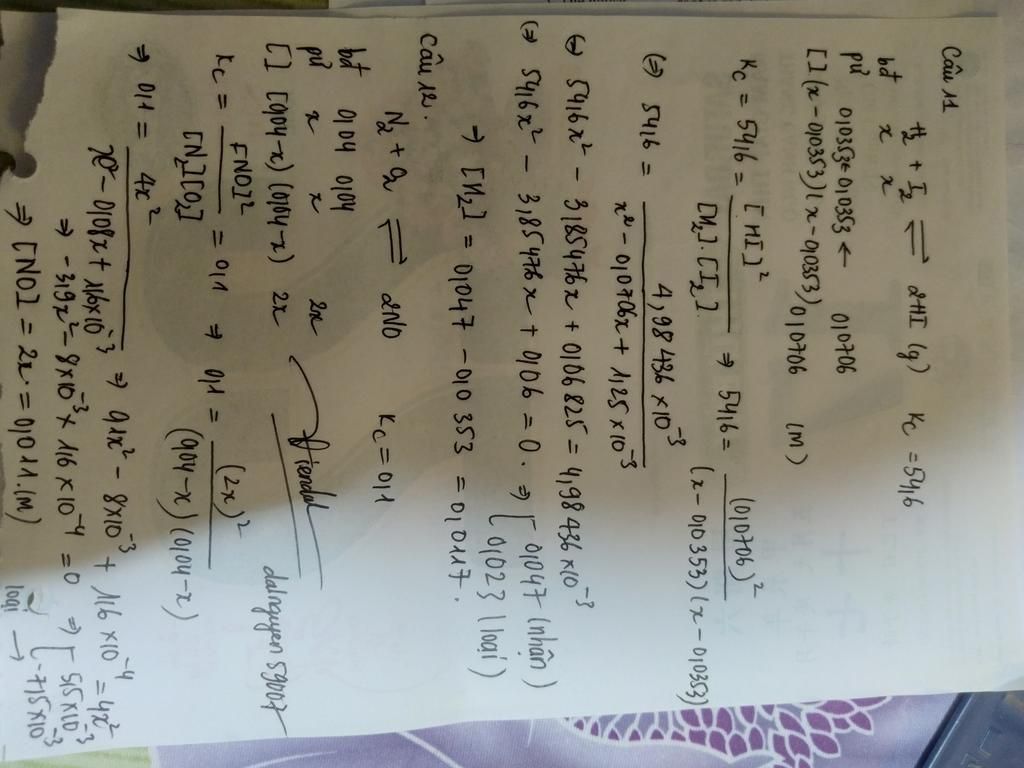 Câu 11
H₂ + I₂ ⇌ 2HI (g) Kc = 54,6
bđ x x
pư 0,0353 ← 0,0353 ← 0,0706
[] (x - 0,0353) (x - 0,0353) 0,0706 (M)
Kc = 54,6 = [HI]² / [H₂].[I₂] ⇒ 54,6 = (0,0706)² / (x - 0,0353)(x - 0,0353)
(=) 54,6 = 4,98436 × 10⁻³ / x² - 0,0706x + 1,25 × 10⁻³
(=) 54,6x² - 3,85476x + 0,06825 = 4,98436 × 10⁻³
(=) 54,6x² - 3,85476x + 0,06 = 0. ⇒ [ 0,047 (nhận)
[ 0,023 (loại)
→ [H₂] = 0,047 - 0,0353 = 0,0117.
Câu 12.
N₂ + O₂ ⇌ 2NO Kc = 0,1
bđ 0,04 0,04
pư x x 2x
[] (0,04-x) (0,04-x) 2x
dahnguyen59007
Kc = [NO]² / [N₂][O₂] = 0,1 ⇒ 0,1 = (2x)² / (0,04-x)(0,04-x)
⇒ 0,1 = 4x² / x² - 0,08x + 1,6×10⁻³ ⇒ 0,1x² - 8×10⁻³ + 1,6 × 10⁻⁴ = 4x²
⇒ -3,9x² - 8×10⁻³x + 1,6×10⁻⁴ = 0 ⇒ [ 5,5×10⁻³
[ -7,5×10⁻³
loại →
⇒ [NO] = 2x = 0,011 (M)